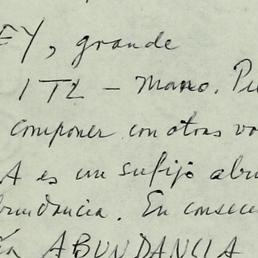 EY, grande
ITL - mano. Pu
componer con otras vo
A es un sufijo abu
bundancia. En consec
ía ABUNDANCIA